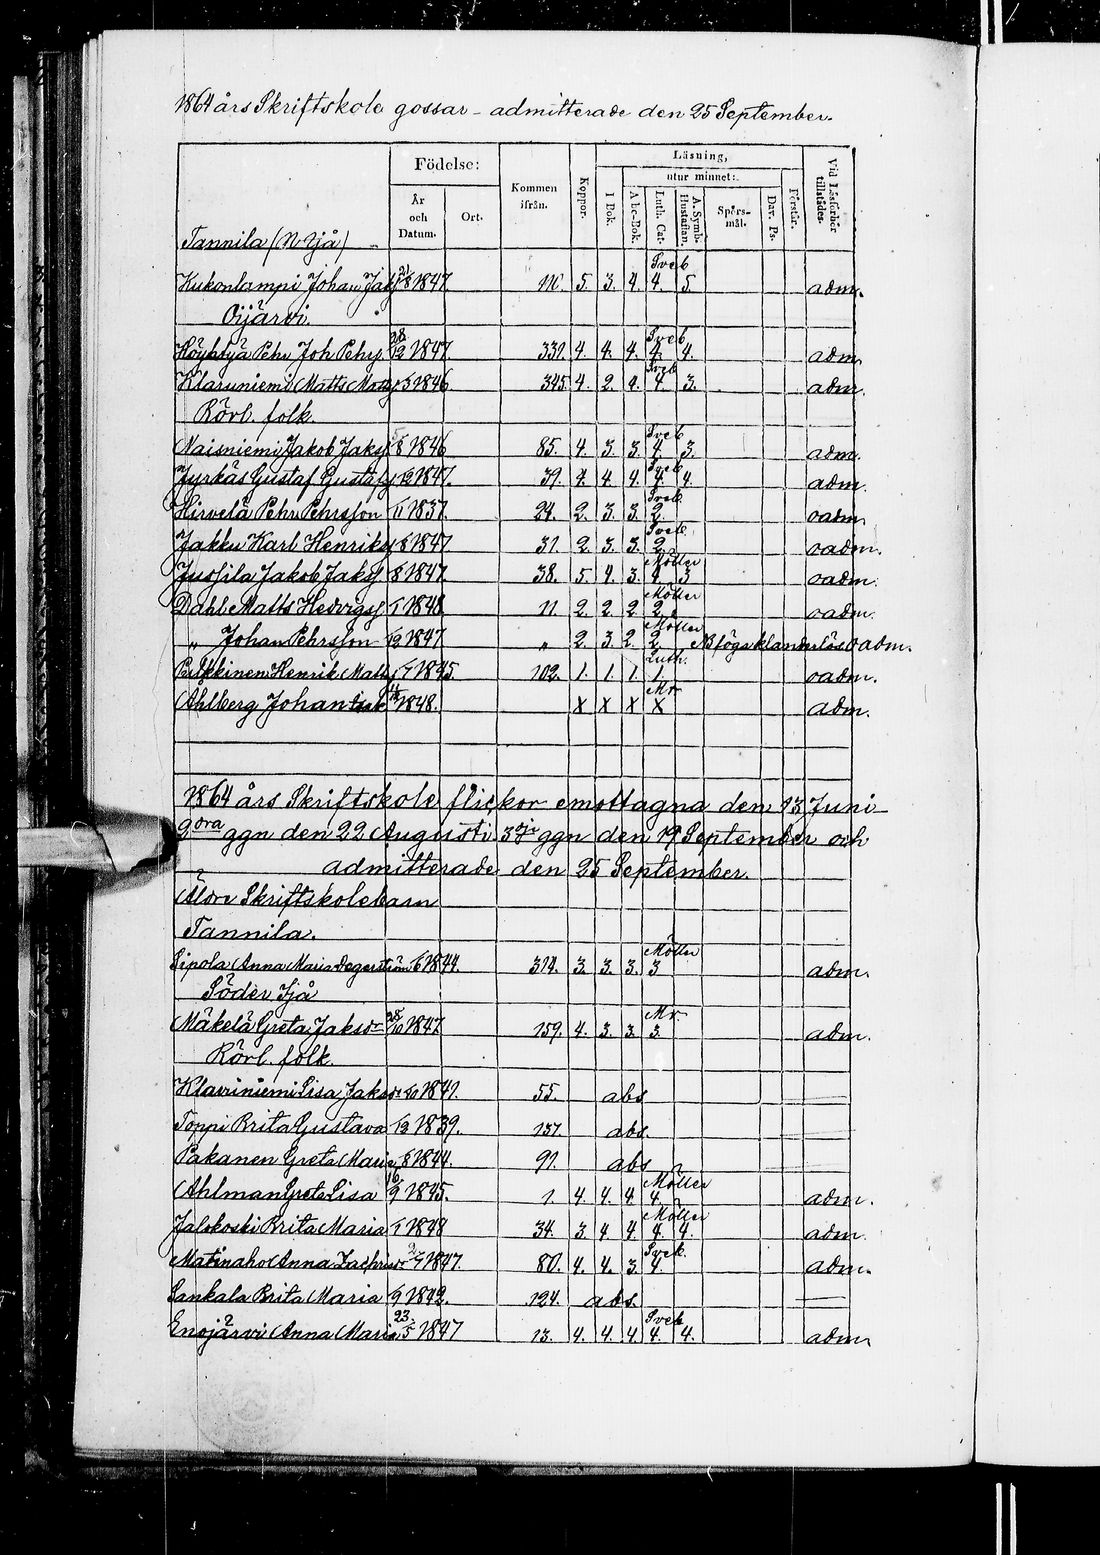 1864 års Skriftskole gossar - admitterade den 25 September.
Födelse:
Kommen ifrån.
Koppor.
Läsning,
utur minnet:
Vid Läsförhör tillstädes.
År och Datum.
Ort.
I Bok.
Abc-Bok.
Luth. Cat.
A. Symb. Hustaflan.
Spörsmål.
Dav. Ps.
Förstår.
Tannila (N Ijå)
Kukonlampi Johan Jaksf 1847. 116. 5. 3. 4. Sveb 4. 5. adm.
Oijärvi.
Höyhtyä Pehr Joh Pehrs. 28/12 1847. 331. 4. 4. 4. Sveb 4. 4. adm.
Klaruniemi Matts Matsf 1846 345. 4. 2. 4. Sveb 4. 3. adm.
Rörl. folk.
Naisniemi Jakob Jaksf 1846 85. 4. 3. 3. Sveb 4. 3. adm.
Jyrkäs Gustaf Gustafsf 1847. 39. 4. 4. 4. Sveb 4. 4. adm.
Hirvelä Pehr Pehrsson 1837. 24. 2. 3. 3. Sveb. 2. oadm
Jakku Karl Henriksf 1847. 31. 2. 3. 3. Sveb 2. oadm.
Jussila Jakob Jaksf 1847. 38. 5. 4. 3. Möller 4. 3 oadm.
Dahl Matts Hedvigsf 1848 11. 2. 2. 2. Möller 2. oadm.
„ Johan Pehrsson 1847 „ 2. 3. 2. Möller 2. NB föga klanderlös oadm.
Pulkkinen Henrik Matts 1845. 102. 1. 1. 1. Luth. 1. oadm.
Ahlberg Johan 1848. x x x Mr x adm.
1864 års Skriftskole flickor emottagna den 13 Juni -
2dra ggn den 22 Augusti. 3dje ggn den 19 September och
admitterade den 25 September.
Äldre Skriftskolebarn
Tannila.
Sipola Anna Maria Degerström 1844. 314. 3. 3. 3. Möller 3 adm.
Söder Ijå
Mäkelä Greta Jaksdr 28/10 1847 159. 4. 3. 3. Mr 3. adm.
Rörl. folk.
Klaviniemi Lisa Jaksdr 1841. 55. abs
Toppi Brita Gustava 1839. 137. abs.
Pakanen Greta Maria 1844. 91. abs
Ahlman Greta Lisa 16/9 1845. 1. 4. 4. 4. Möller 4. adm.
Jalokoski Brita Maria 1848 34. 3. 4 4. Möller 4. 4. adm.
Matinaho Anna Zachrisdr 1847. 80. 4. 4. 3. Sveb. 4. adm.
Sankala Brita Maria 1842. 124. abs.
Enojärvi Anna Maria 23/5 1847 13. 4. 4. 4. Sveb 4. 4. adm